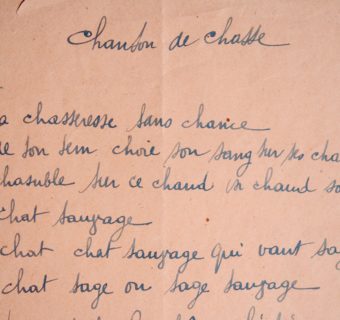 Chanson de chasse
a chasseresse sans chance
de son sein choie son sang sur ses cha
chasuble sur ce chaud chaud so
chat sauvage
chat chat sauvage qui vaut sa
chat sage ou sage sauvage